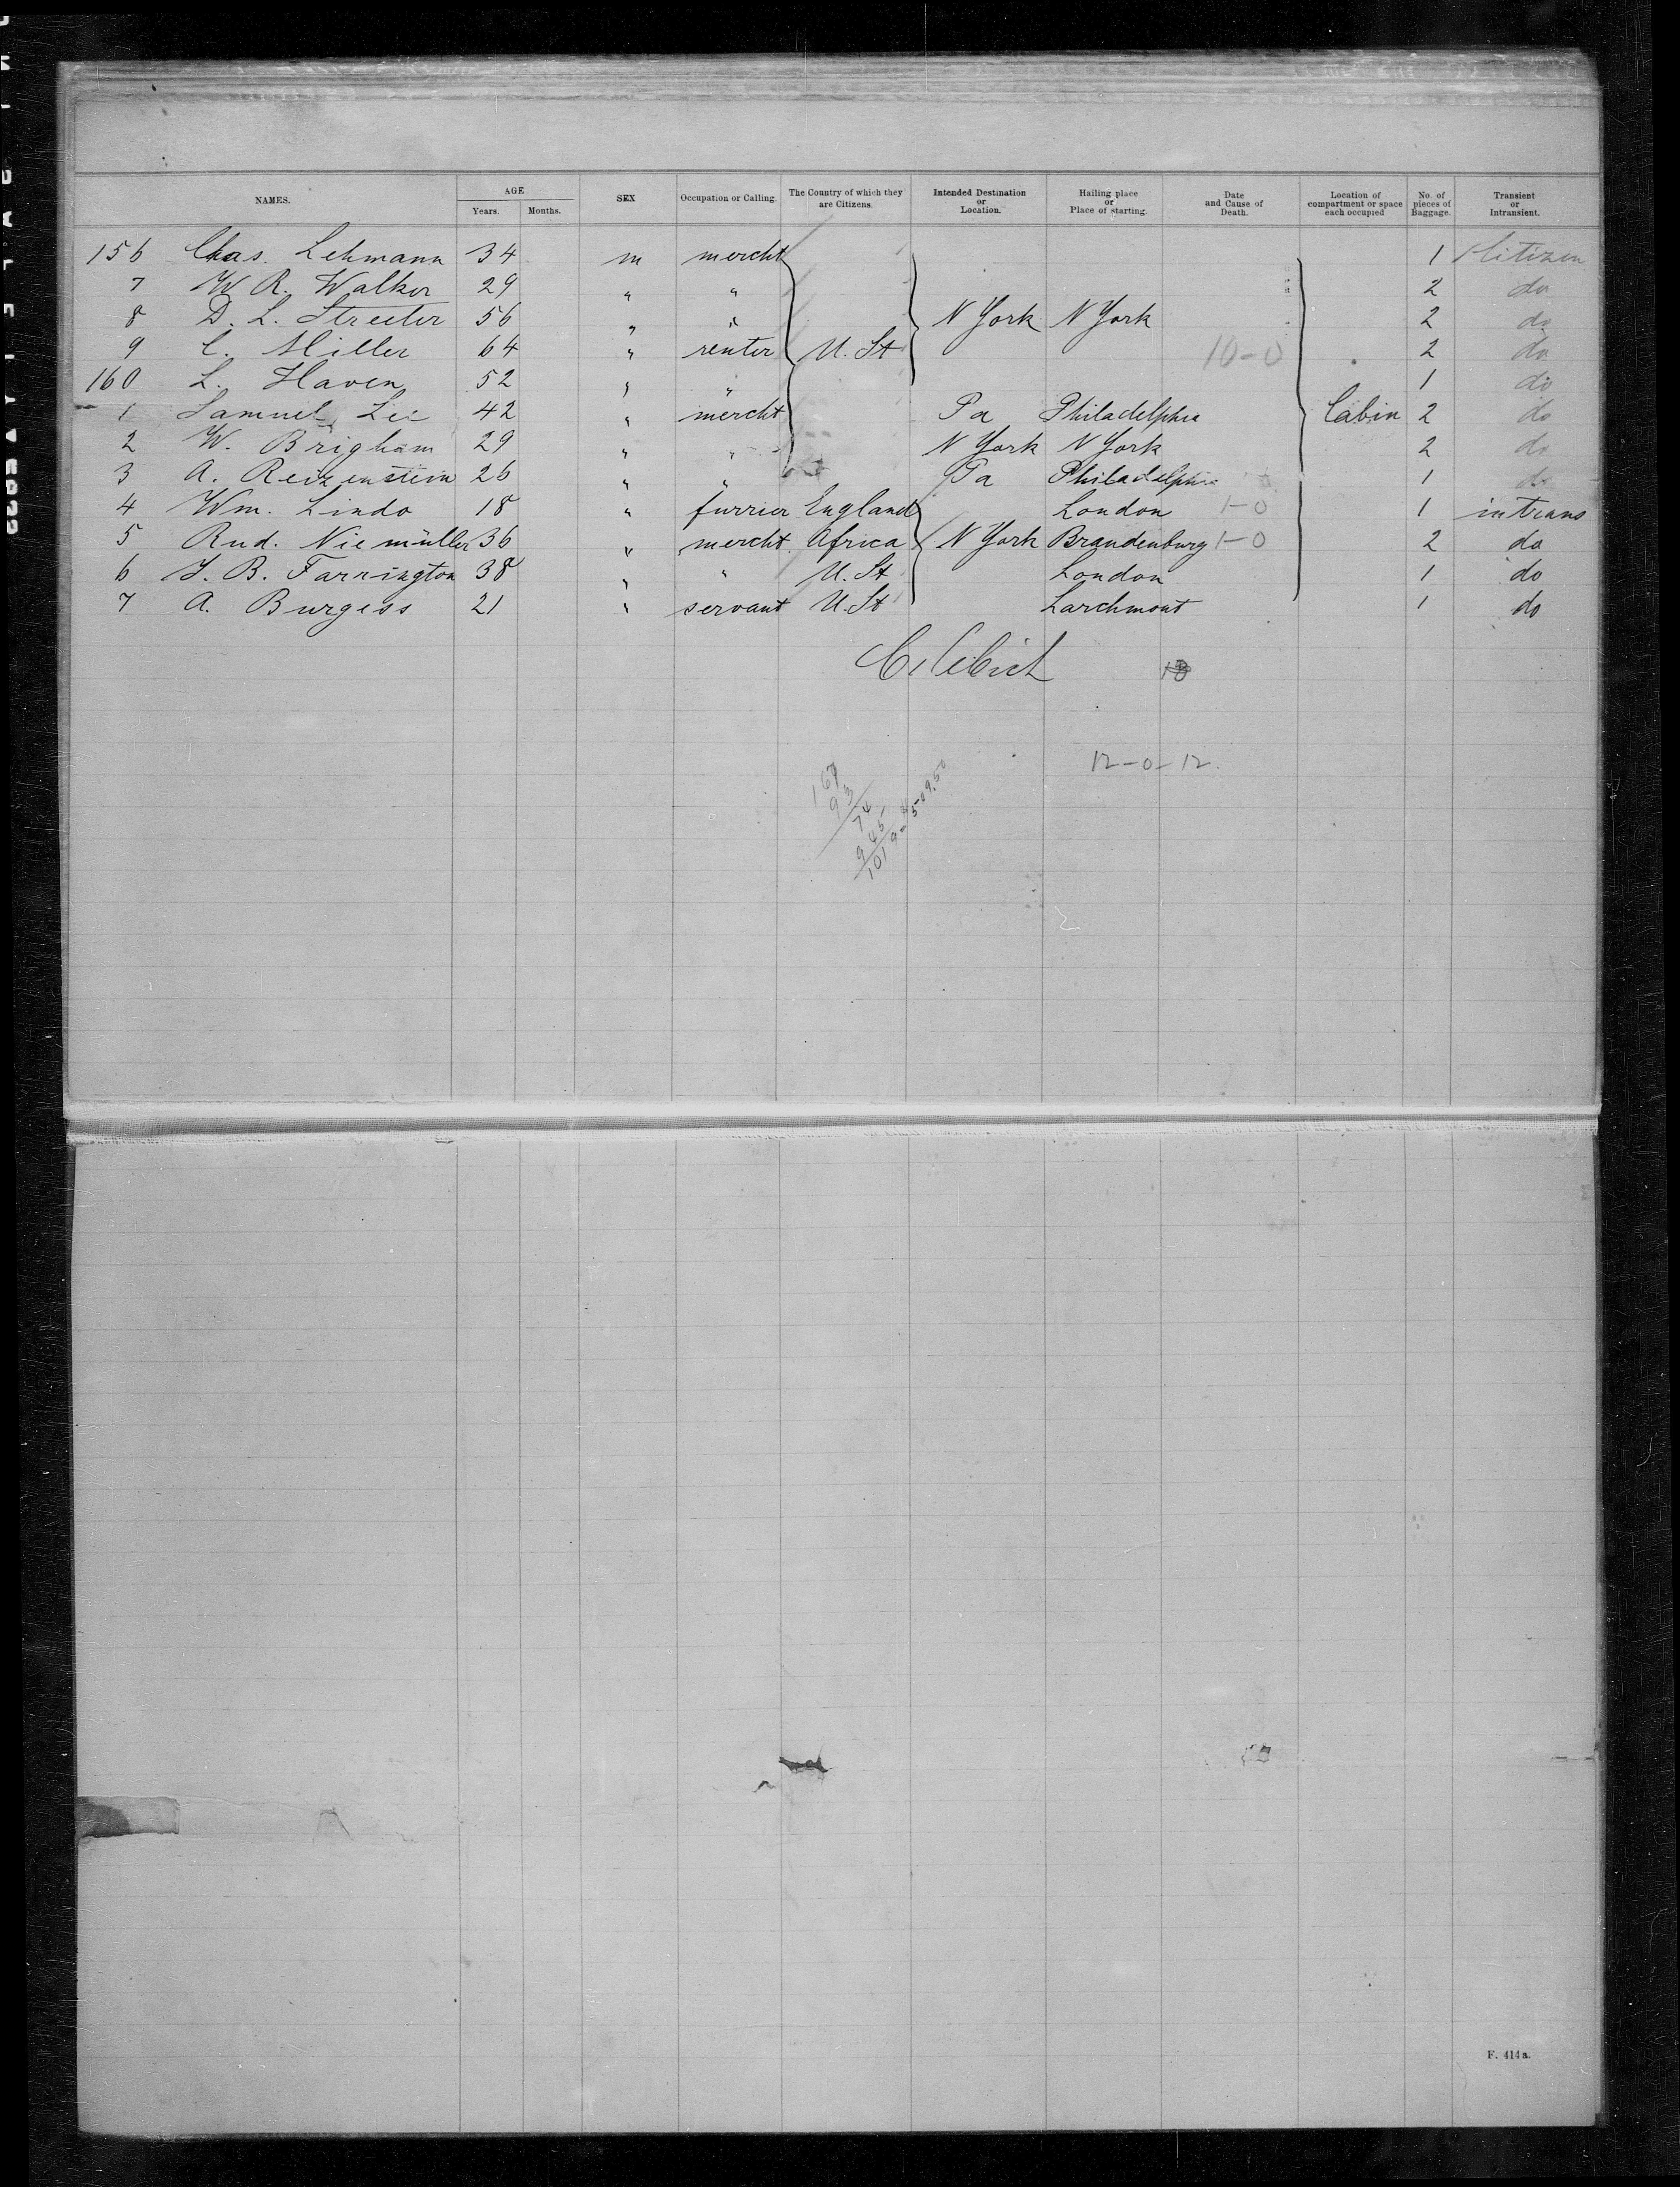 NAMES. AGE Years. Months. SEX Occupation or Calling. The Country of which they are Citizens. Intended Destination or Location. Hailing place or Place of starting. Date and Cause of Death. Location of compartment or space each occupied No. of pieces of Baggage. Transient or Intransient.
156 Chas. Lehmann 34 m mercht 1 Citizen
7 W. R. Walker 29 " " 2 do
8 D. L. Streeter 56 " " N York N York 2 do
9 C. Miller 64 " renter U. St 10-0 2 do
160 L. Haven 52 " " 1 do
1 Samuel Lee 42 " mercht Pa Philadelphia Cabin 2 do
2 W. Brigham 29 " " N York N York 2 do
3 A. Reizenstein 26 " " Pa Philadelphia 1 do
4 Wm. Lindo 18 " furrier England London 1-0 1 intrans
5 Rud. Niemüller 36 " mercht. Africa N York Brandenburg 1-0 2 do
6 F. B. Farrington 38 " " U. St London 1 do
7 A. Burgess 21 " servant U. St Larchmont 1 do
12-0-12.
167
93
74
945
1019
509.50
F. 414a.